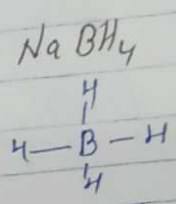 NaBH4
H
H—B—H
H